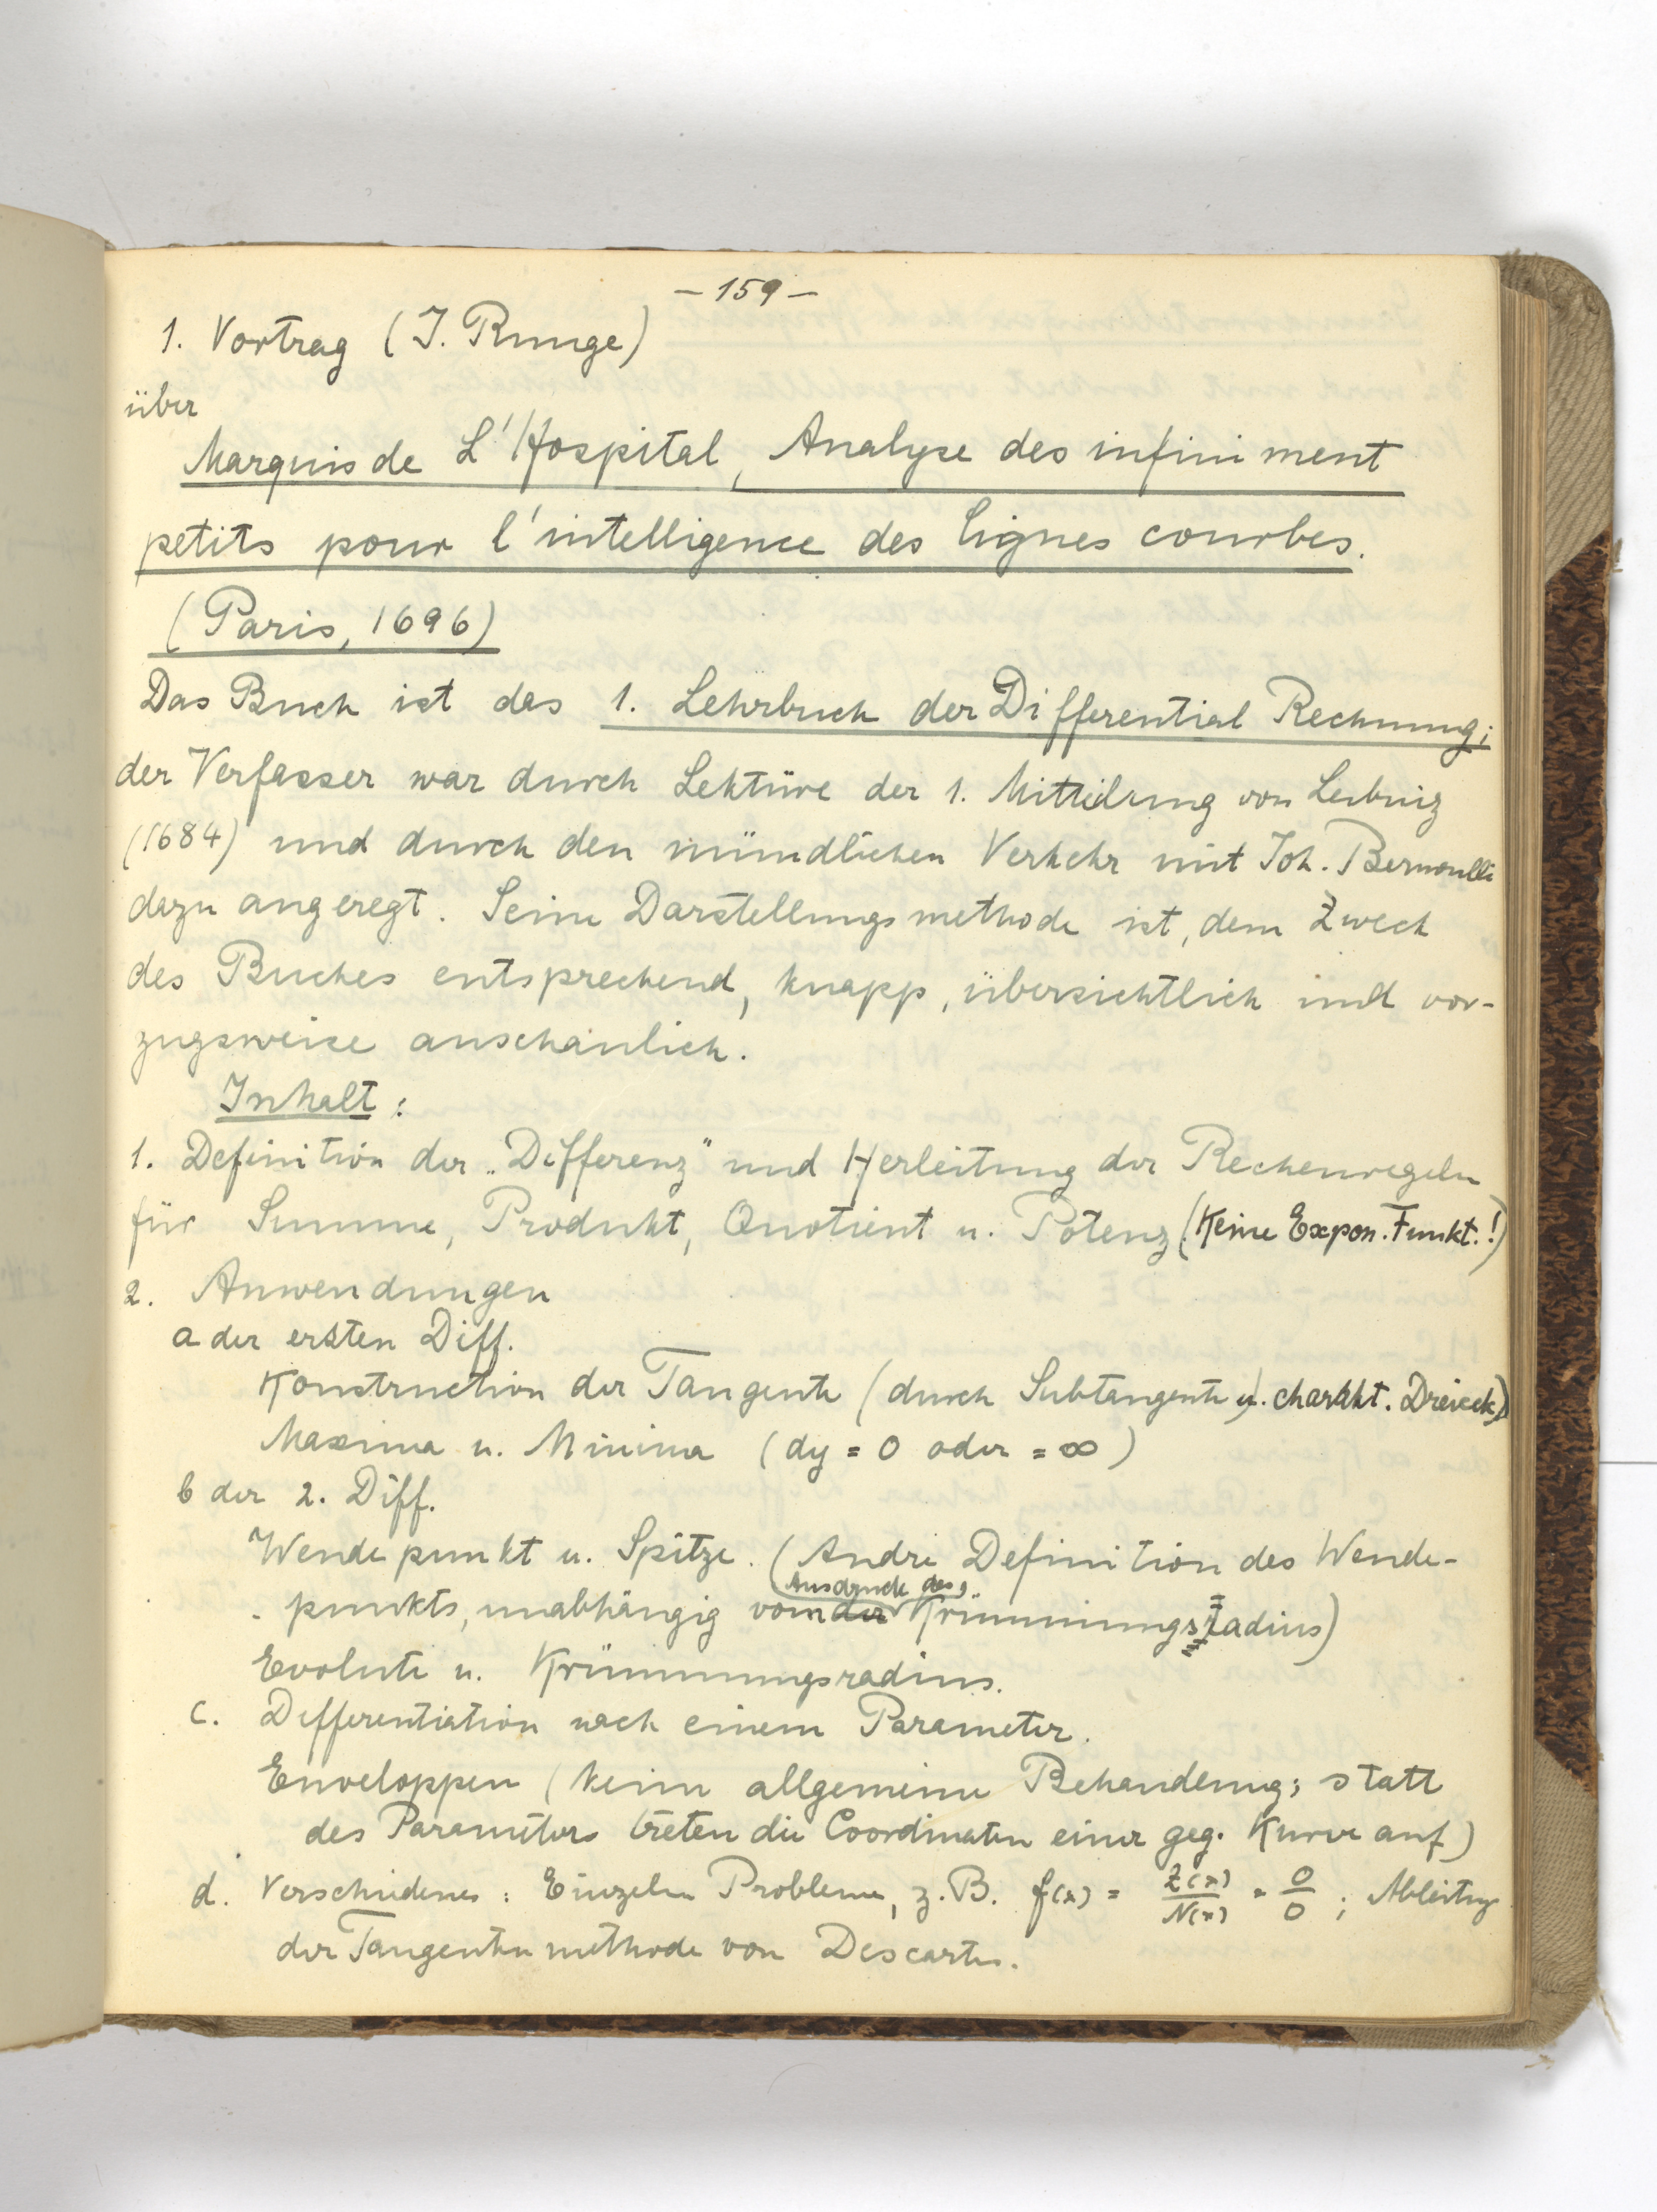 – 159 –
1. Vortrag (I. Runge)
über
Marquis de L'Hospital, Analyse des infiniment
petits pour l'intelligence des lignes courbes.
(Paris, 1696)
Das Buch ist das 1. Lehrbuch der Differential Rechnung;
der Verfasser war durch Lektüre der 1. Mitteilung von Leibniz
(1684) und durch den mündlichen Verkehr mit Joh. Bernoulli
dazu angeregt. Seine Darstellungsmethode ist, dem Zweck
des Buches entsprechend, knapp, übersichtlich und vor-
zugsweise anschaulich.
Inhalt:
1. Definition der „Differenz" und Herleitung der Rechenregeln
für Summe, Produkt, Quotient u. Potenz (Keine Expon. Funkt.!)
2. Anwendungen
a der ersten Diff.
Konstruction der Tangente (durch Subtangente u. charakt. Dreieck)
Maxima u. Minima (dy = 0 oder = ∞)
b der 2. Diff.
Wendepunkt u. Spitze. (Andre Definition des Wende-
Ausdruck des
punkts, unabhängig vom der Krümmungsradius)
Evolute u. Krümmungsradius.
c. Differentiation nach einem Parameter.
Enveloppen (keine allgemeine Behandlung; statt
des Parameters treten die Coordinaten einer geg. Kurve auf)
d. Verschiedenes: Einzelne Probleme, z.B. f(x) = Z(x)/N(x) = 0/0; Ableitung
der Tangentenmethode von Descartes.